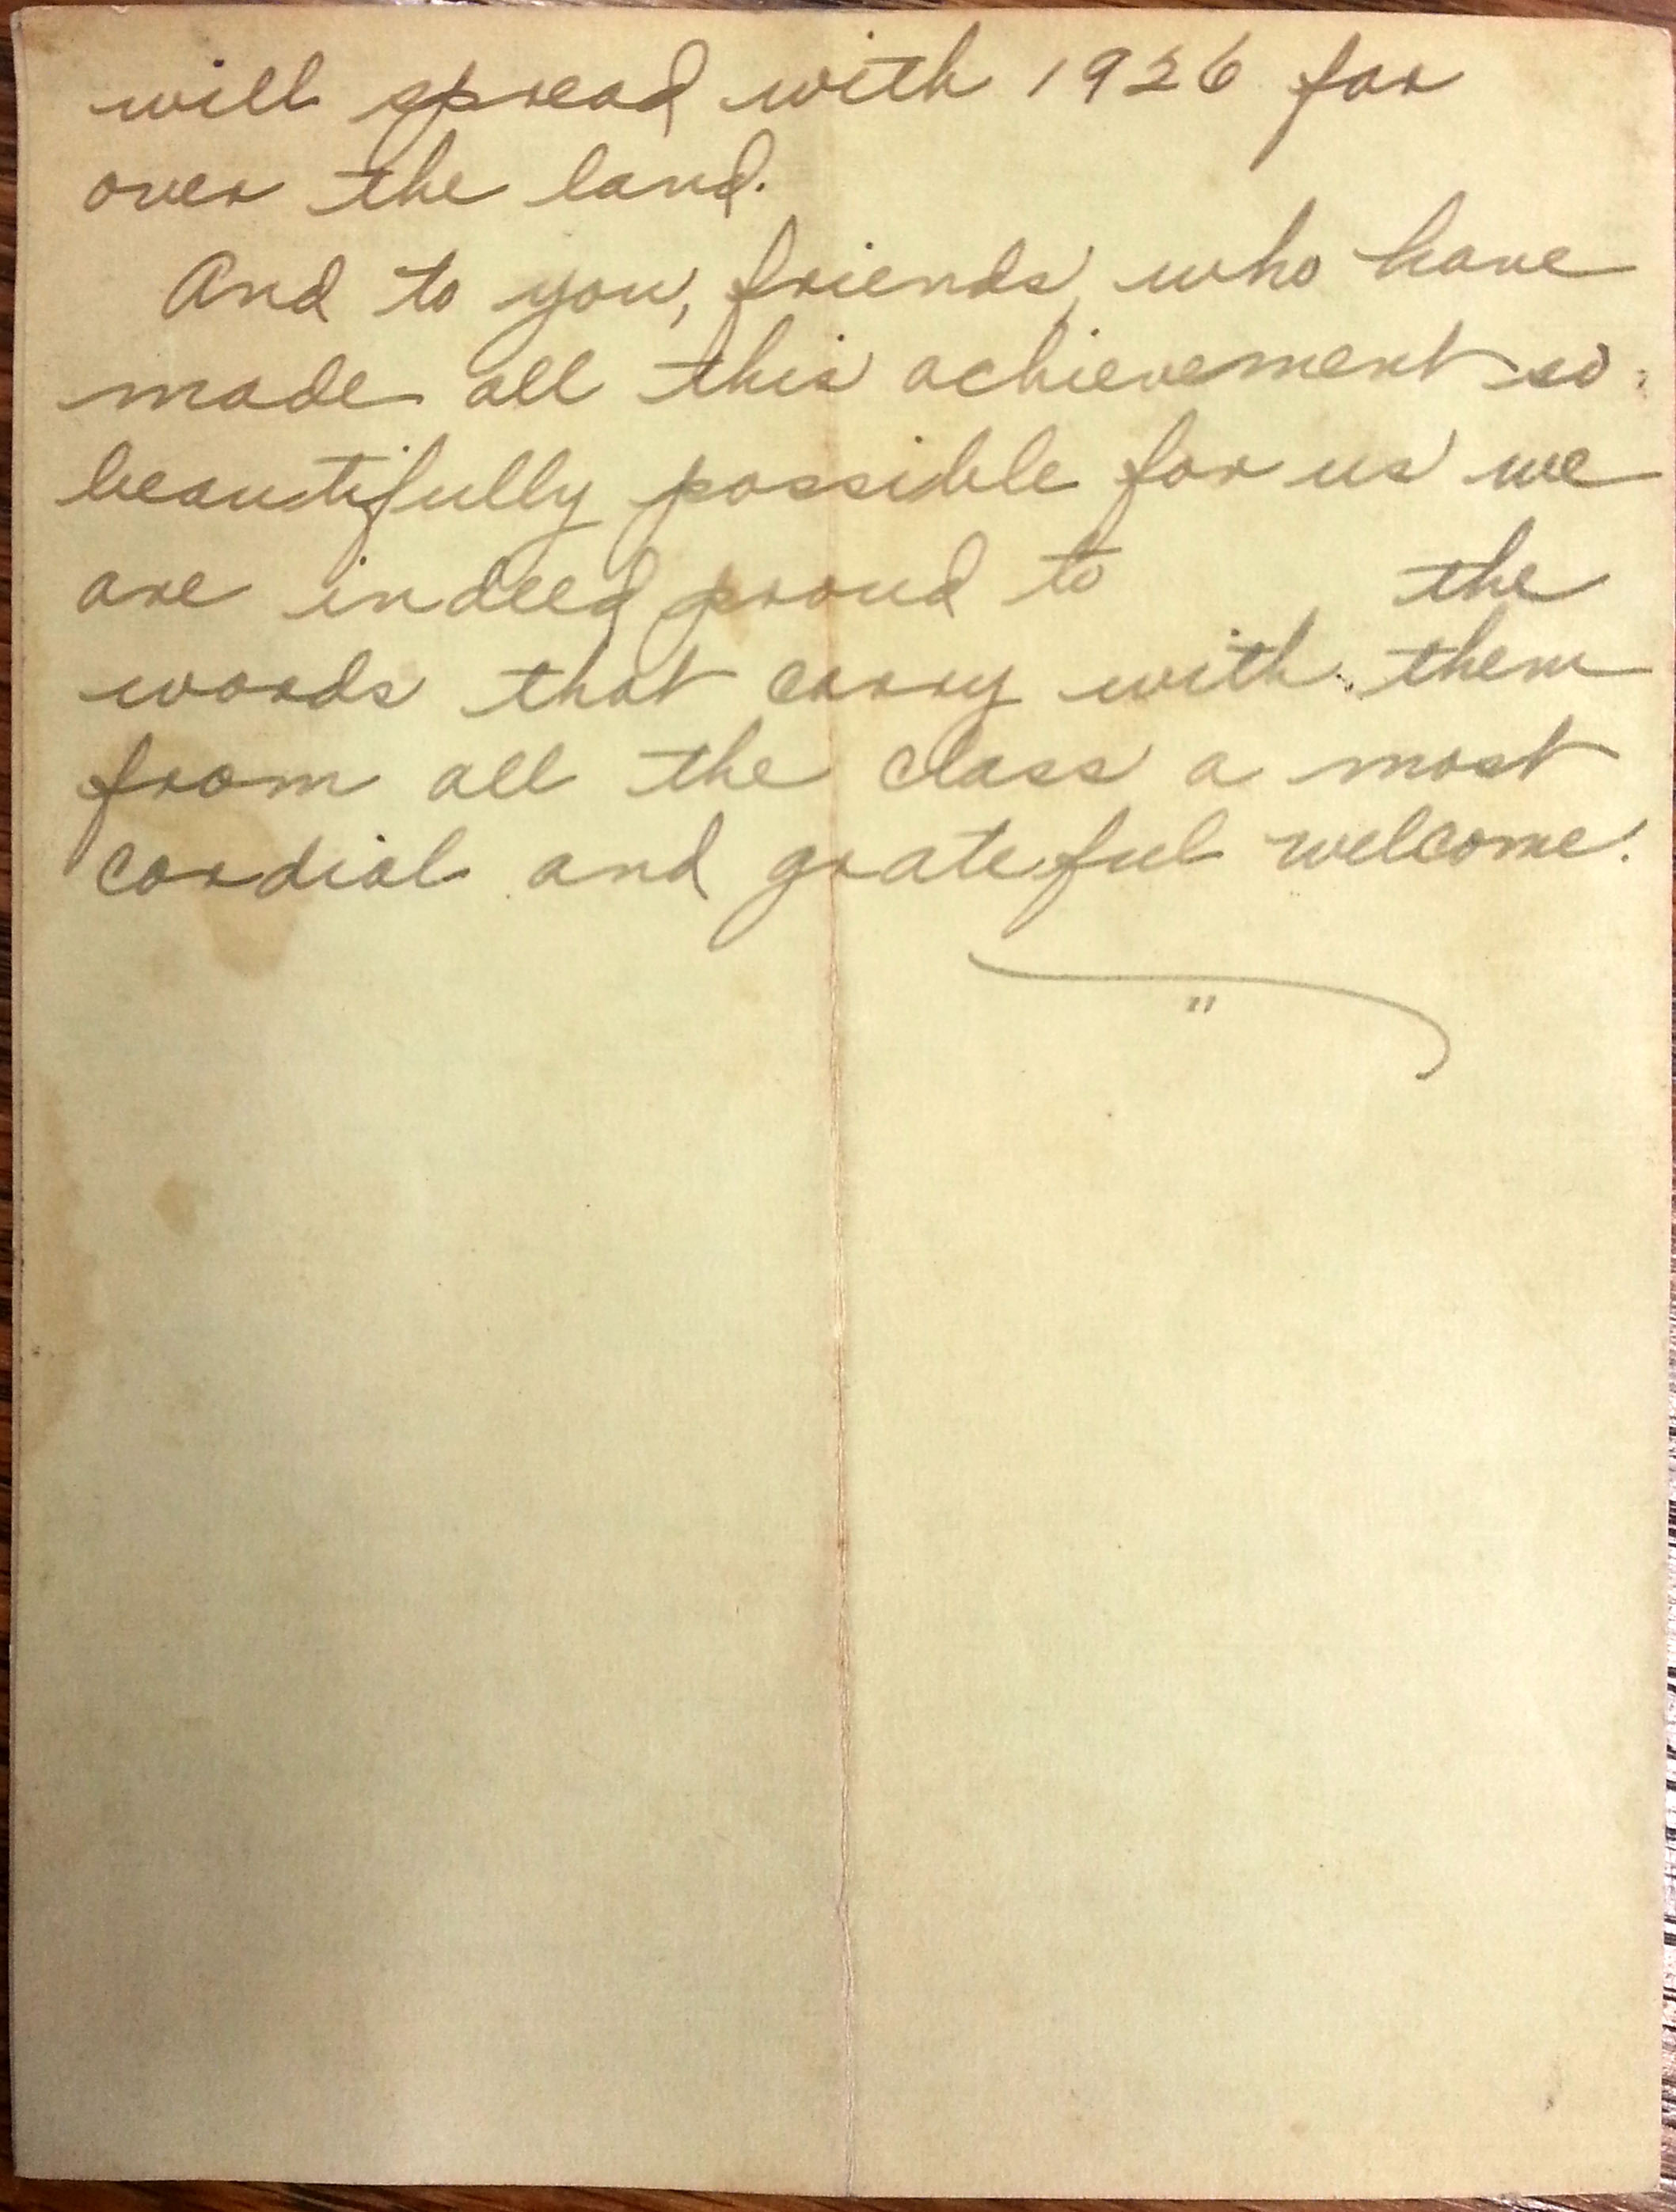 will spread with 1926 far
over the land.
And to you, friends, who have
made all this achievement so
beautifully possible for us we
are indeed proud to the
words that carry with them
from all the class a most
cordial and grateful welcome.
"